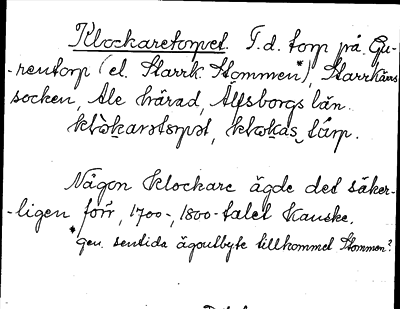 Klockaretorpet. F.d. torp på Gu-
-rentorp (el. Starrk. Stommen*), Starrkärrs
socken, Ale härad, Älfsborgs län.
klòkarətorpət, klokas tårp.
Någon klockare ägde det säker-
-ligen förr, 1700-, 1800-talet kanske.
*gen. sentida ägoutbyte tillkommet Stommen?